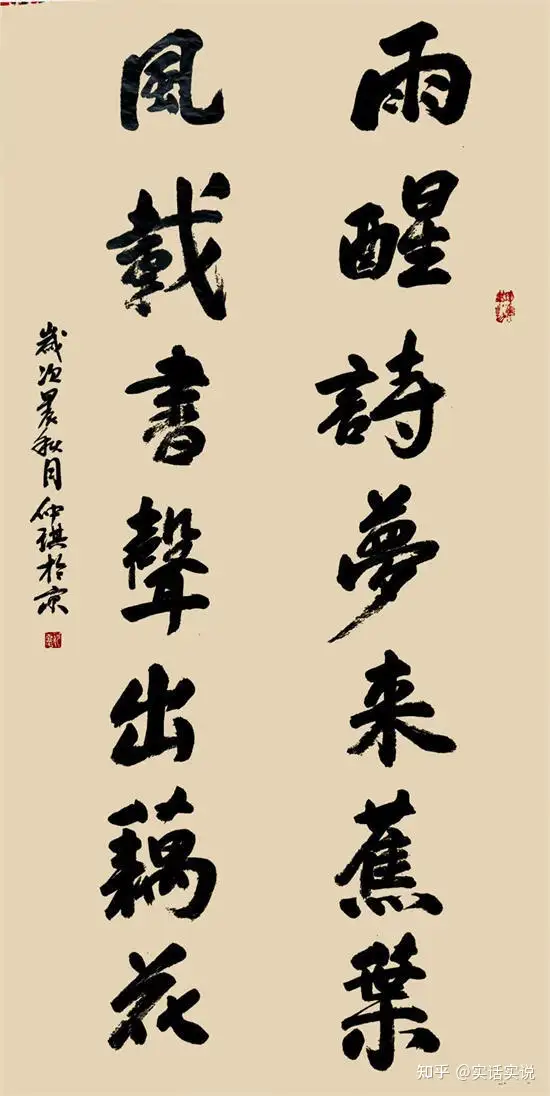 雨醒詩夢来蕉葉
風載書聲出藕花
歲次晨秋月仲琪於京
知乎 @实话实说